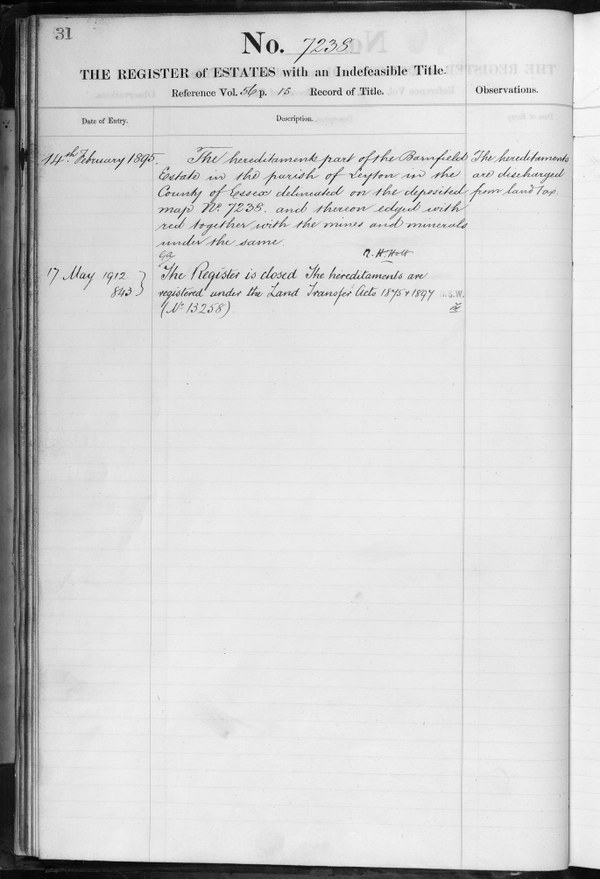 31
No. 7238
THE REGISTER of ESTATES with an Indefeasible Title.
Reference Vol. 56 p. 15 Record of Title.
Observations.
Date of Entry.
Description.
14th February 1895.
The hereditaments part of the Barnfield
Estate in the parish of Leyton in the
County of Essex delineated on the deposited
map No. 7238. and thereon edged with
red together with the mines and minerals
under the same.
R. H. Holt
The hereditaments
are discharged
from land tax.
17 May 1912
843
The Register is closed The hereditaments are
registered under the Land Transfer Acts 1875 & 1897
(No 13258)